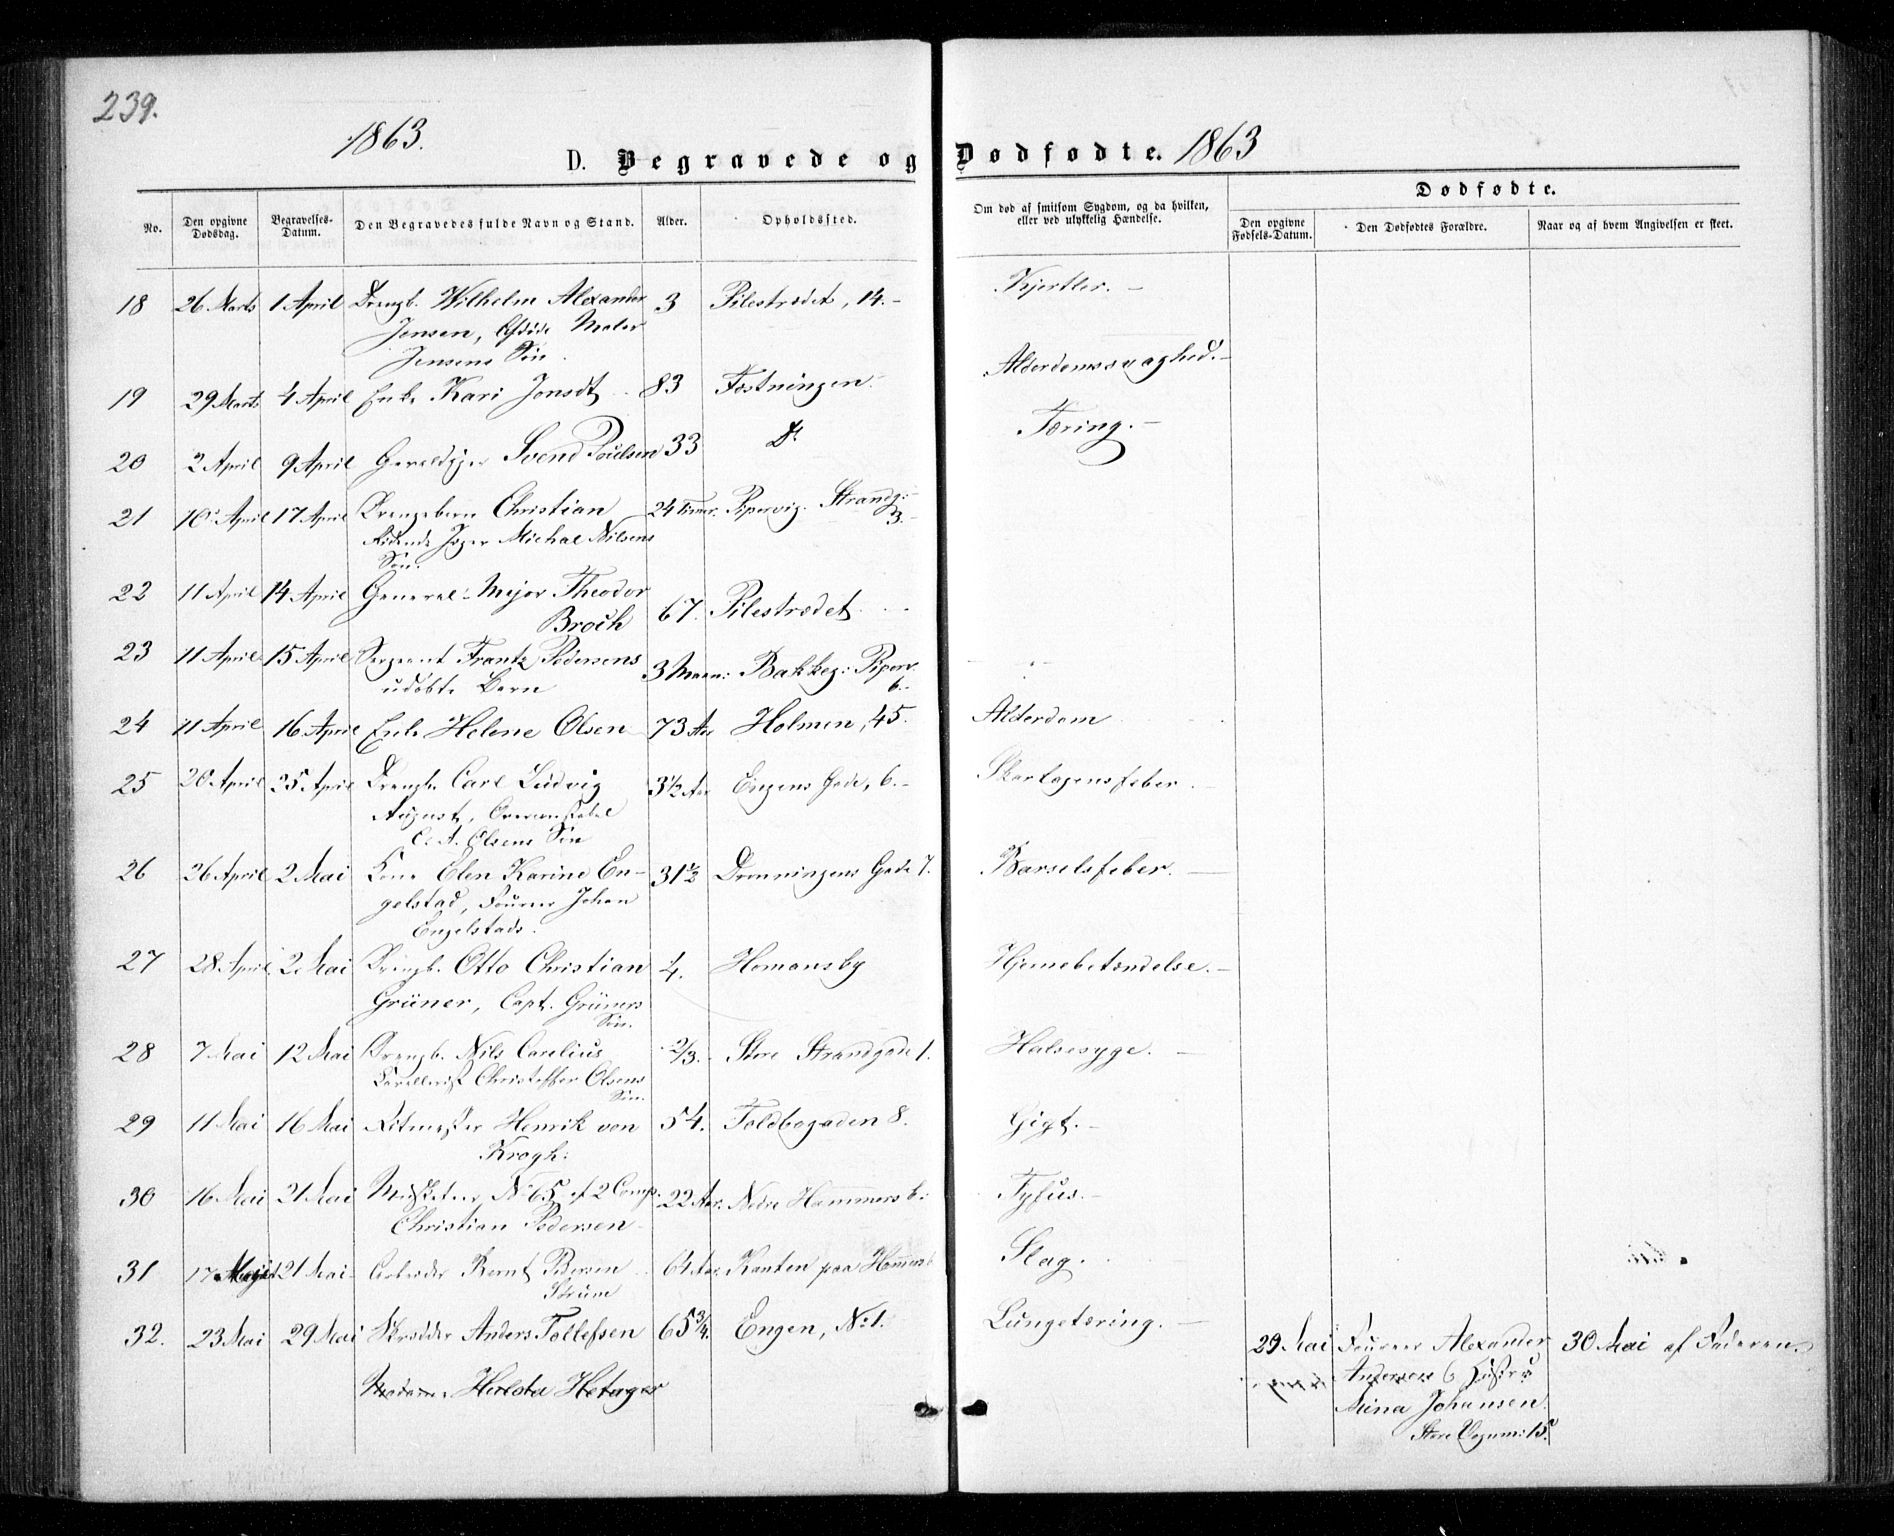 239.
1863.
D. Begravede og Dødfødte. 1863
Dødfødte.
No.
Den opgivne Dødsdag.
Begravelses-Datum.
Den Begravedes fulde Navn og Stand.
Alder.
Opholdssted.
Om død af smitsom Sygdom, og da hvilken, eller ved ulykkelig Hændelse.
Den opgivne Fødsels-Datum.
Den Dødfødtes Forældre.
Naar og af hvem Angivelsen er skeet.
18 26 Marts 1 April Drengb. Wilhelm Alexander 3 Pilestrædet, 14. Kjertler.
Jensen, Afdøde Maler
Jensens Søn
19 29 Marts 4 April Enke Kari Jonsdt 83 Fæstningen. Alderdomssvaghed.
20 2 April 9 April Geveldiger Svend Poulsen 33 Do Tæring.
21 10 April 17 April Drengebarn Christian 24 Timer. Pipervig. Strandg:
3.
Ridende Jæger Michal Nilsens
Søn.
22 11 April 14 April General-Major Theodor
Broch 67. Pilestrædet
23 11 April 15 April Sergeant Frantz Pedersens 3 Maan: Bakkeg: Piperv.
6.
udøbte Barn
24 11 April 16 April Enke Helene Olsen 73 Aar Holmen, 45. Alderdom
25 20 April 25 April Drengb. Carl Ludvig 3½ Aar Engens Gade, 6. Skarlagensfeber.
August, Overconstabel
C. A. Olsens Søn
26 26 April 2 Mai Kone Elen Karine En- 31½ Dronningens Gade 7. Barselsfeber.
gelstad, Fourer Johan
Engelstads.
27 28 April 2 Mai Drengb. Otto Christian 4. Homansby Hjernebetændelse.
Grüner, Capt. Grüners
Søn.
28 7 Mai 12 Mai Drengb. Nils Carelius 2/3. Store Strandgade 1. Halsesyge.
Christoffer Olsens
Søn.
29 11 Mai 16 Mai Ritmester Henrik von 54. Toldbogaden 8. Gigt.
Krogh.
30 16 Mai 21 Mai Musketeer No 65 af 2 Comp. 22 Aar. Nedre Hammersb: Tyfus.
Christian Pedersen
31 17 Mai 21 Mai Arbeider Bernt Pedersen 64 Aar. Kanten paa Hammersb Slag.
32. 23 Mai 29 Mai Skrædder Anders Tollefsen 65 3/4. Engen, No 1. Lungetæring.
29 Mai Fourer Alexander 30 Mai af Faderen.
Andersen & Hustru
Mina Johansen.
Store 15.
Madame Hulda